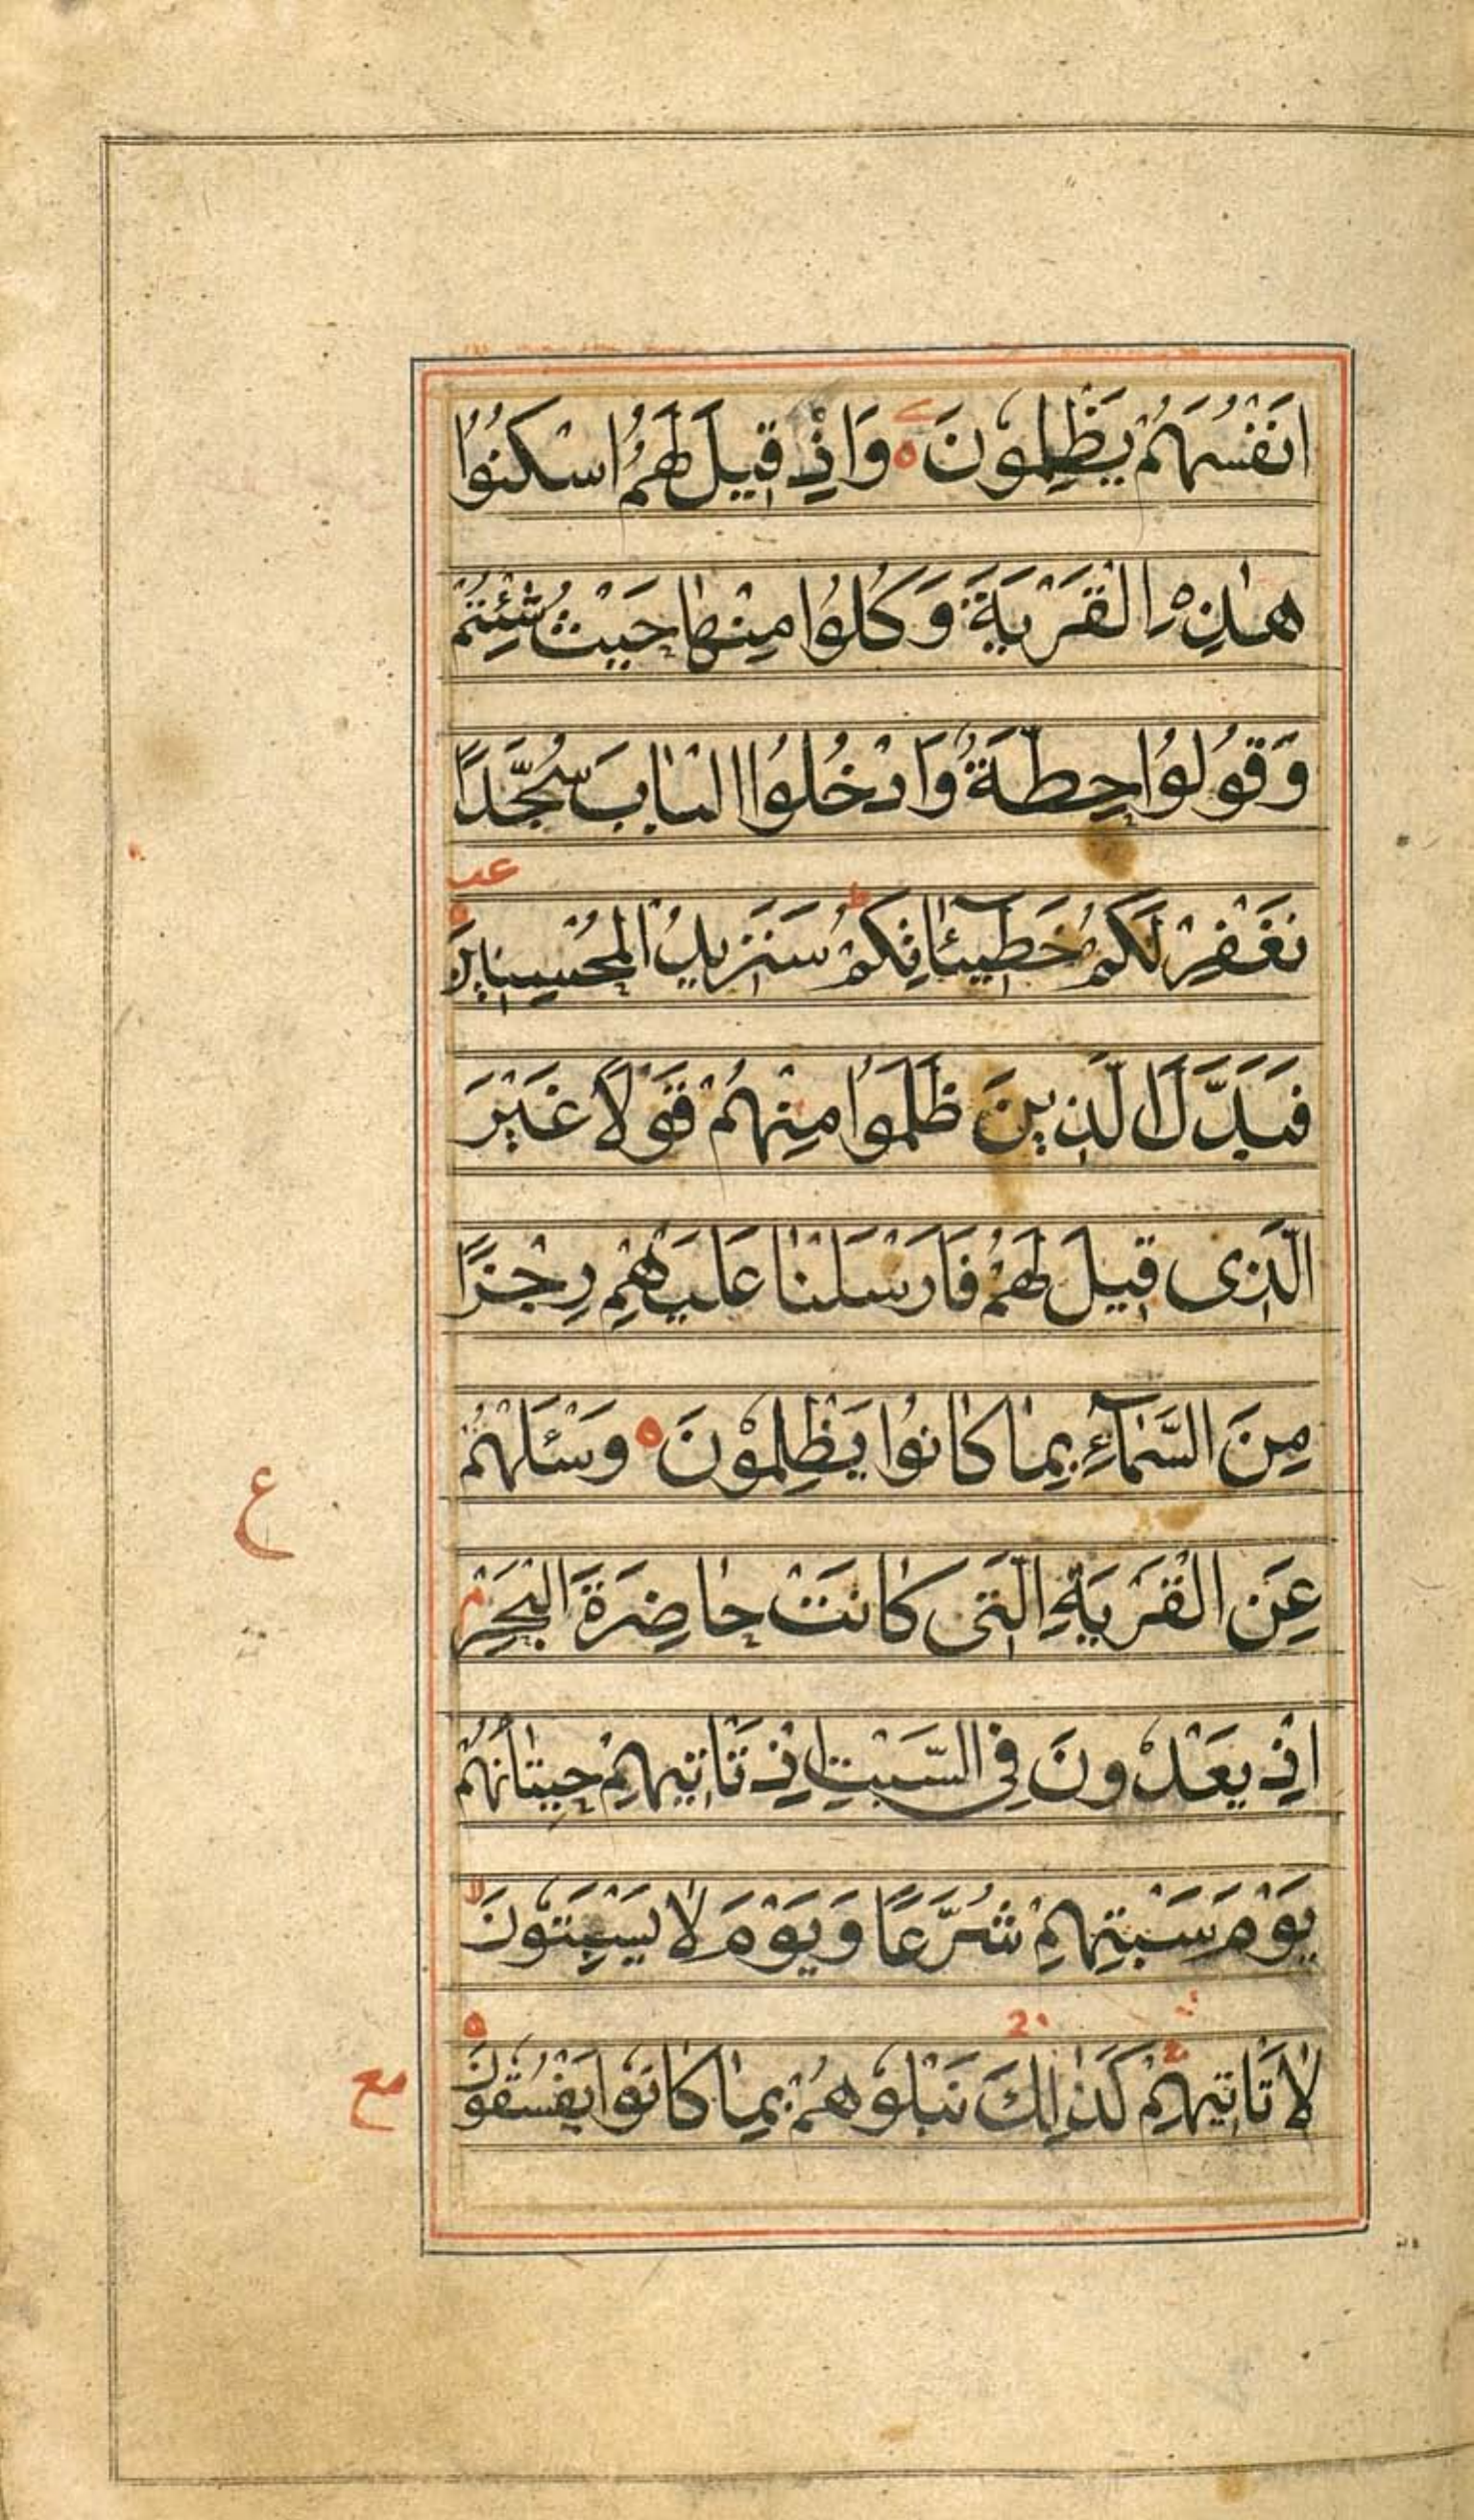 اَنْفُسَهُمْ يَظْلِمُونَ ۝ وَاِذْ قِيلَ لَهُمُ اسْكُنُوا
هٰذِهِ الْقَرْيَةَ وَكُلُوا مِنْهَا حَيْثُ شِئْتُمْ
وَقُولُوا حِطَّةٌ وَادْخُلُوا الْبَابَ سُجَّدًا
عب
نَغْفِرْ لَكُمْ خَطِيئَاتِكُمْ ط سَنَزِيدُ الْمُحْسِنِينَ
فَبَدَّلَ الَّذِينَ ظَلَمُوا مِنْهُمْ قَوْلًا غَيْرَ
الَّذِى قِيلَ لَهُمْ فَاَرْسَلْنَا عَلَيْهِمْ رِجْزًا
مِنَ السَّمَآءِ بِمَا كَانُوا يَظْلِمُوْنَ ۝ وَسْئَلْهُمْ
ع
عَنِ الْقَرْيَةِ الَّتِى كَانَتْ حَاضِرَةَ الْبَحْرِ م
اِذْ يَعْدُونَ فِى السَّبْتِ اِذْ تَاْتِيهِمْ حِيتَانُهُمْ
يَوْمَ سَبْتِهِمْ شُرَّعًا وَيَوْمَ لَا يَسْبِتُونَ لا
لَا تَاْتِيهِمْ كَذٰلِكَ نَبْلُوهُمْ بِمَا كَانُوا يَفْسُقُونَ ۝
مع